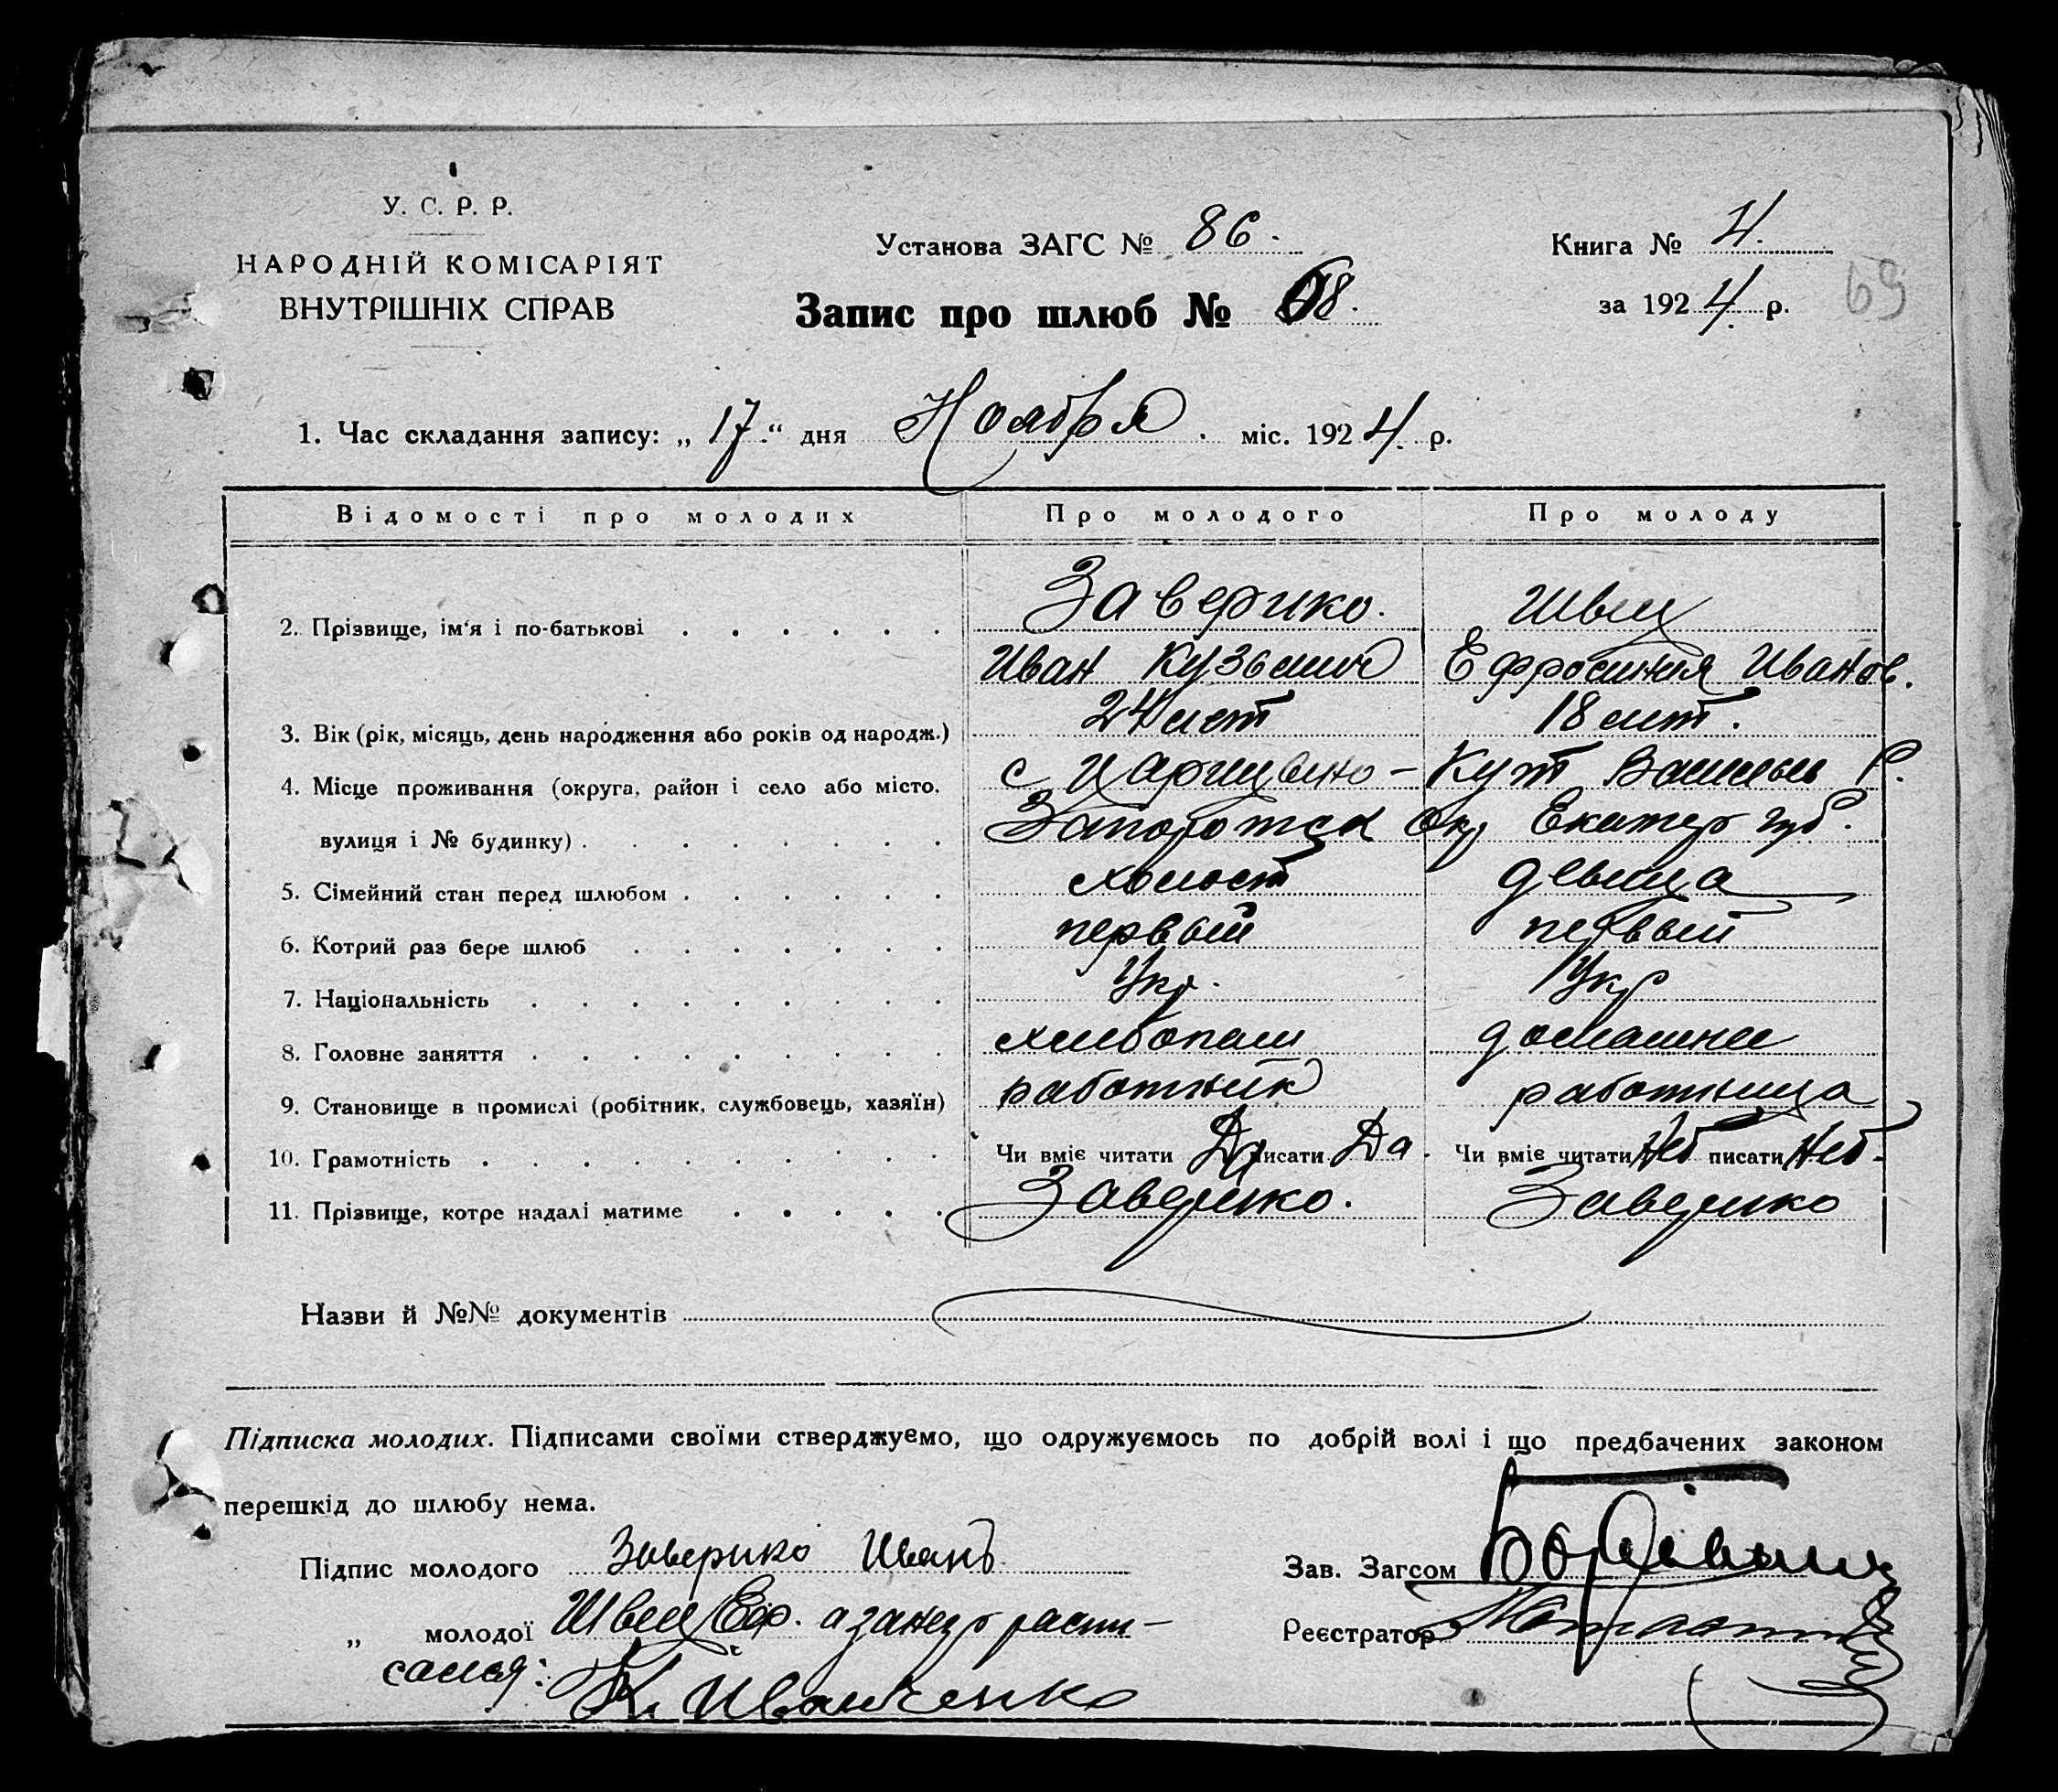 У. С. Р. Р.
НАРОДНІЙ КОМІСАРІЯТ
ВНУТРІШНІХ СПРАВ
Установа ЗАГС № 86.
Книга № 4.
Запис про шлюб № 68.
за 1924. р.
69
1. Час складання запису: „17.“ дня Ноября. міс. 1924. р.
Відомості про молодих Про молодого Про молоду
Заверико. Швец
2. Прізвище, ім'я і по-батькові
Иван Кузьмич Ефросиния Иванов.
24 лет 18 лет.
3. Вік (рік, місяць, день народження або років од народж.)
с Царицыно - Кут Васильев Р.
4. Місце проживання (округа, район і село або місто,
Запорожск Окр Екатер губ.
вулиця і № будинку)
5. Сімейний стан перед шлюбом холост девица
6. Котрий раз бере шлюб первый первый
7. Національність Укр. Укр
8. Головне заняття хлебопаш домашнее
9. Становище в промислі (робітник, службовець, хазяїн) работник работница
10. Грамотність Чи вміє читати Да писати Да. Чи вміє читати Нет писати Нет.
11. Прізвище, котре надалі матиме Заверико. Заверико
Назви й №№ документів
Підписка молодих. Підписами своїми стверджуємо, що одружуємось по добрій волі і що предбачених законом
перешкід до шлюбу нема.
Підпис молодого Заверико Иванъ
Зав. Загсом
„ молодої Швец Еф. а за нея распи-
Реєстратор
сался: К. Иванченко